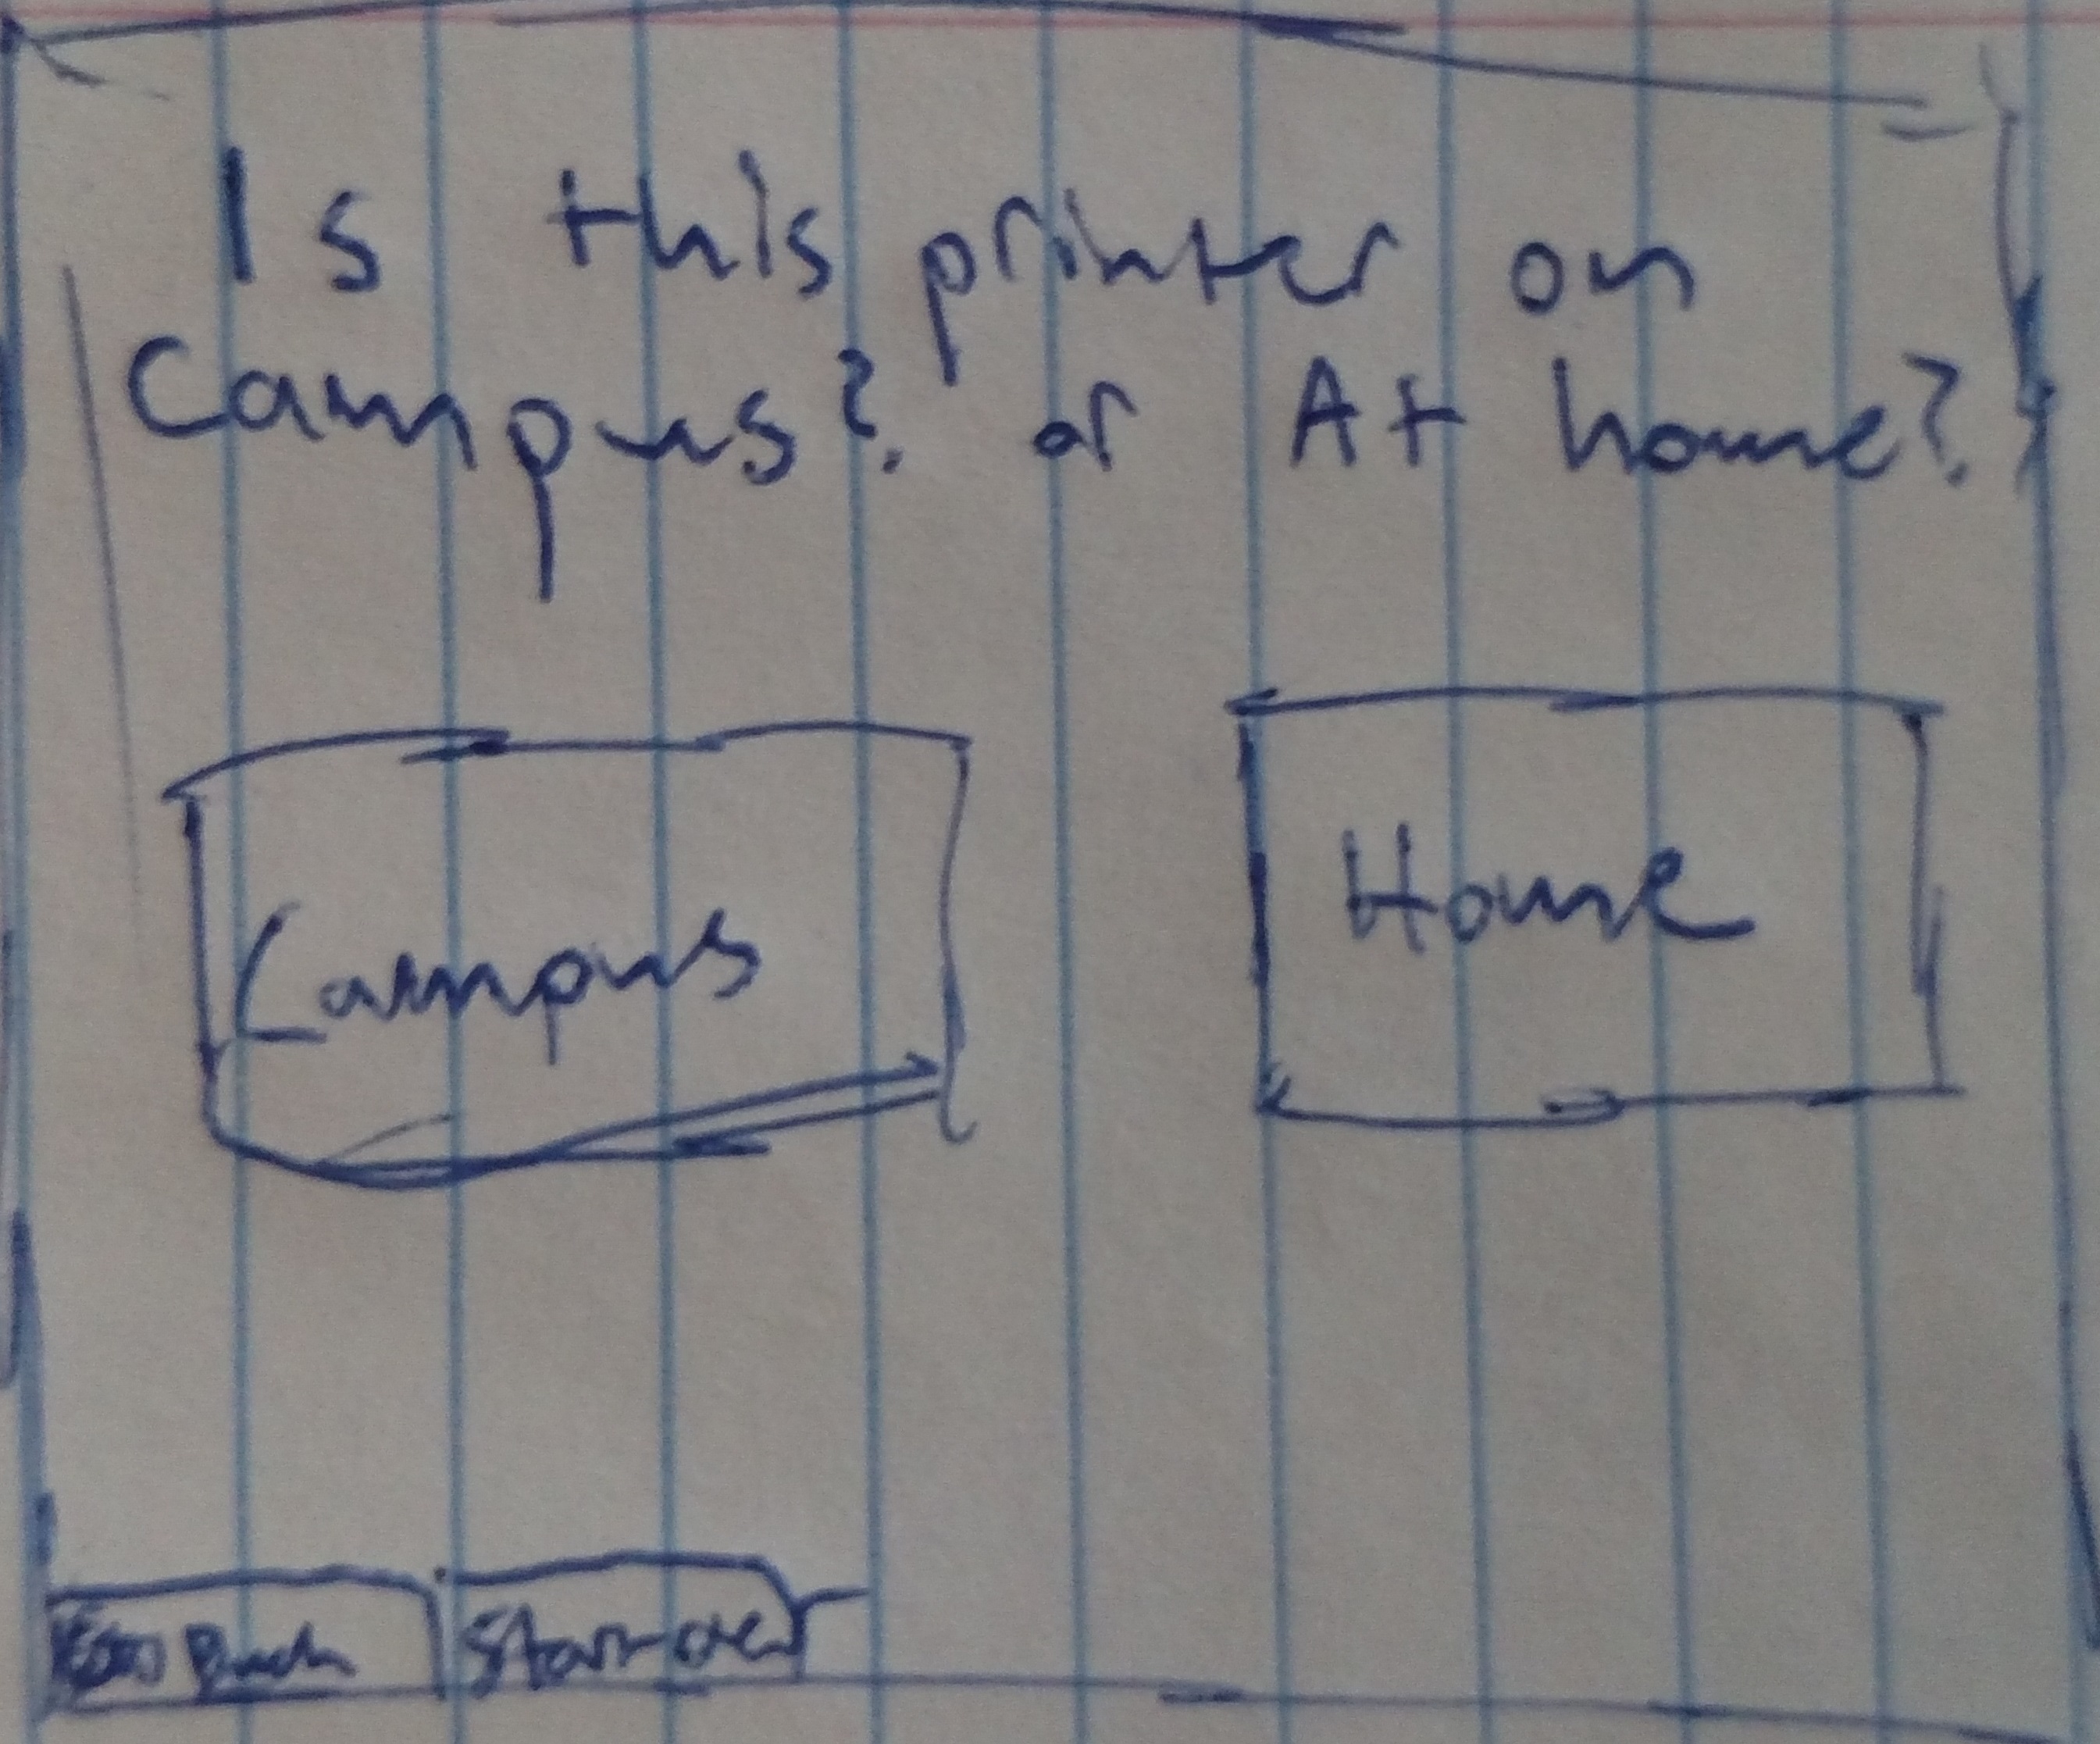 Is this printer on
Campus? or At home?
Campus
Home
Back
Start over